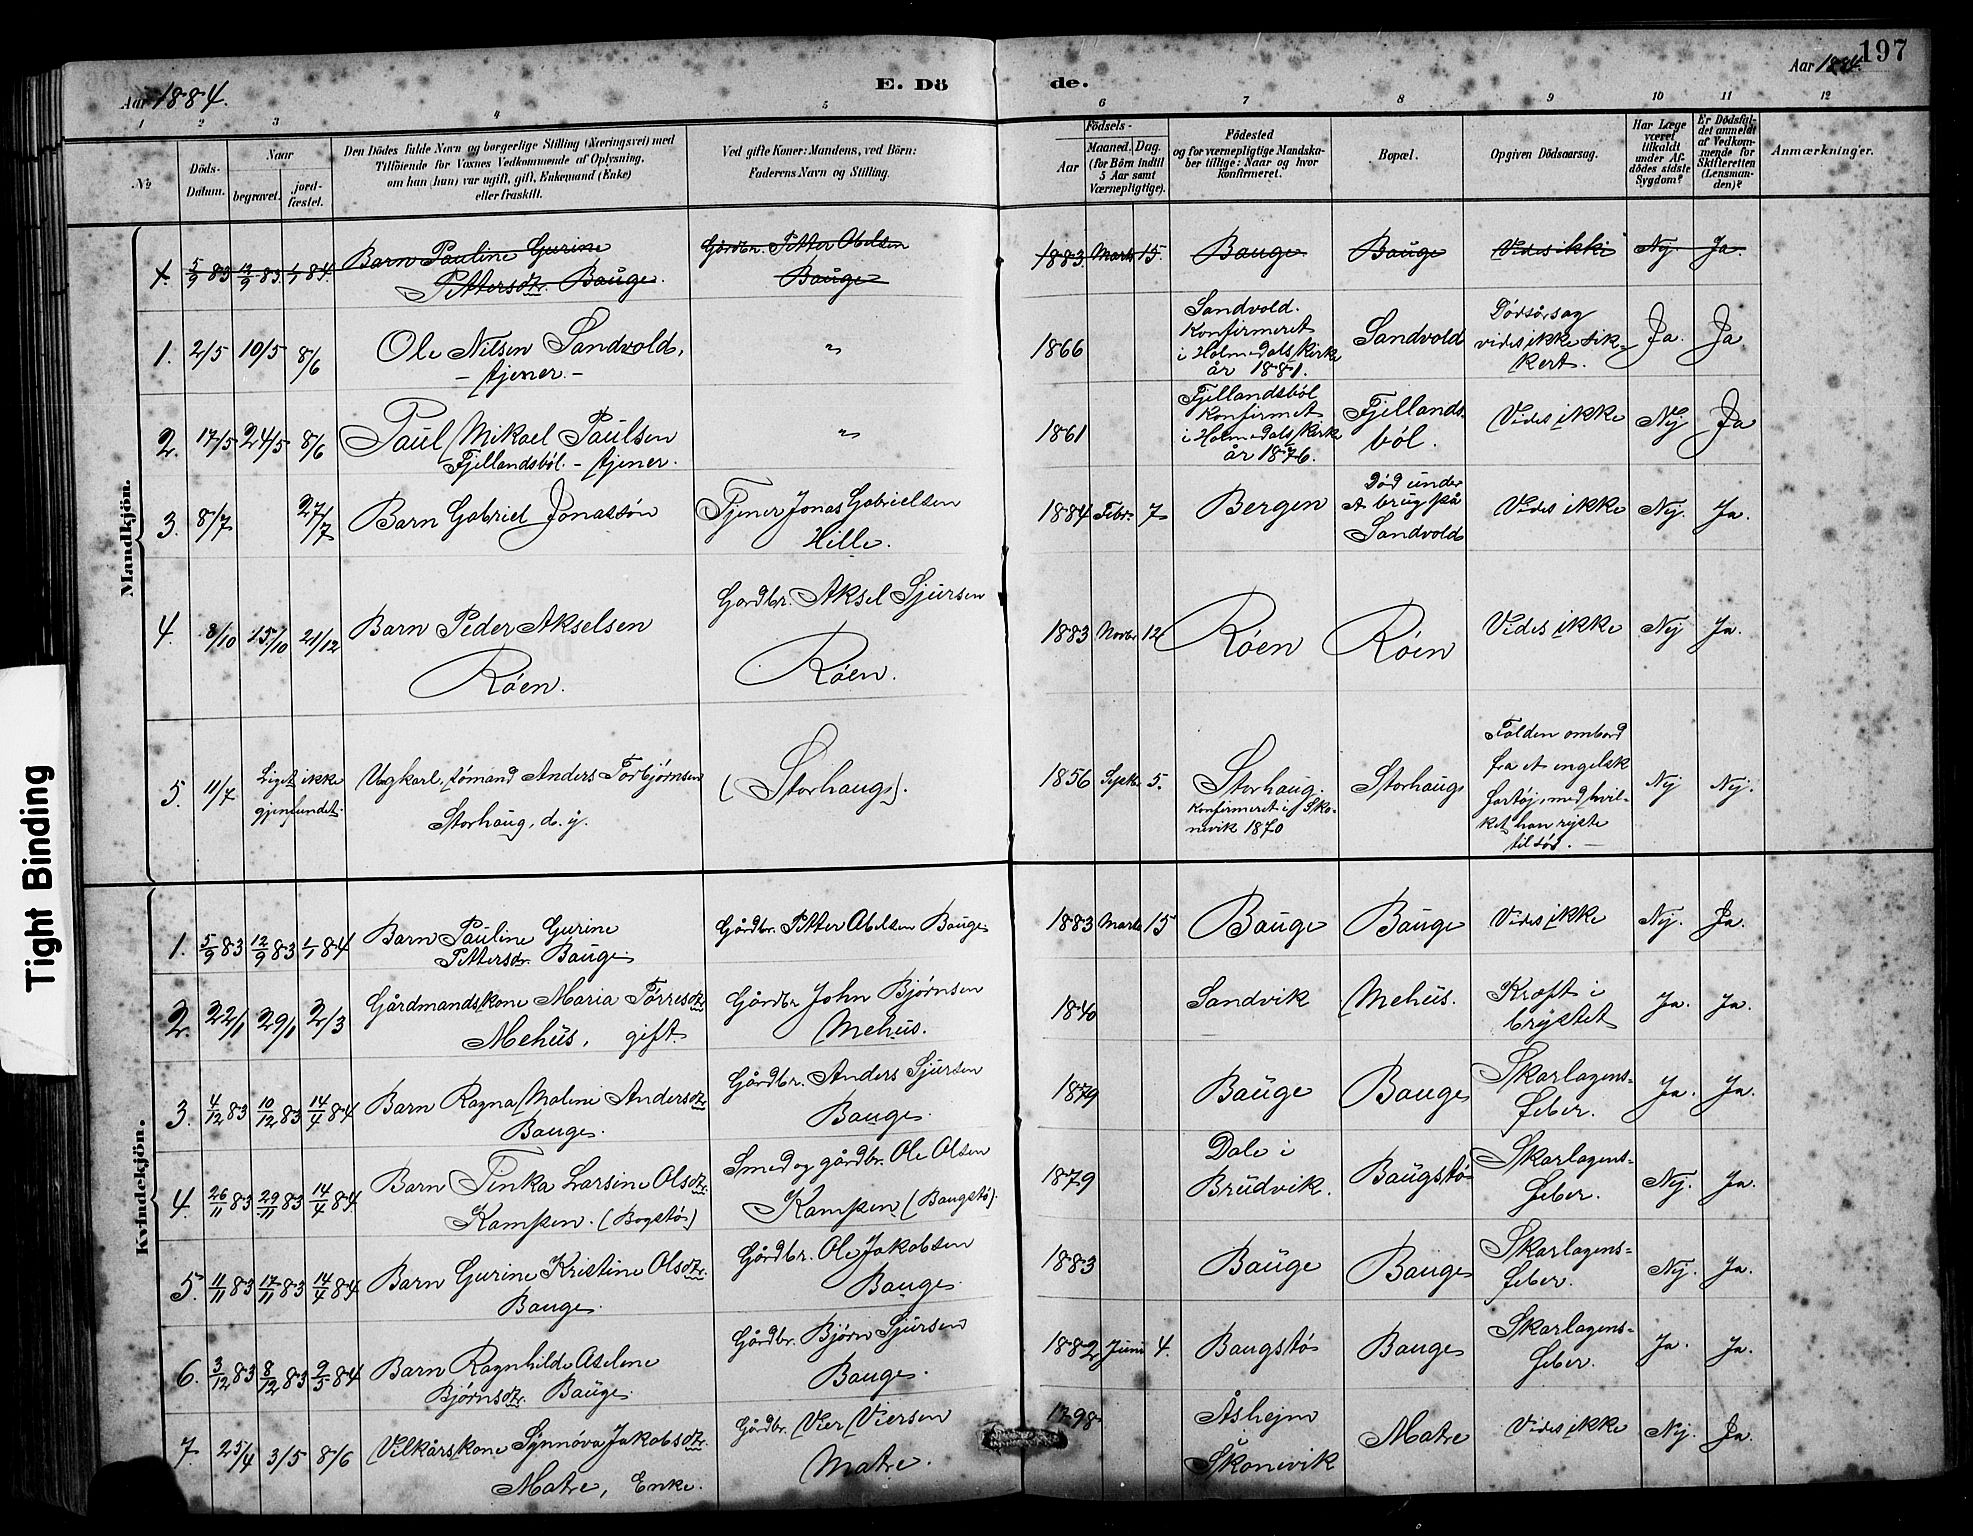 197
Aar 1884.
E. Dö
de.
Aar 1884.
1 2 3 4 5 6 7 8 9 10 11 12
No
Döds-
Datum.
Naar
begravet.
jord-
fæstet.
Den Dödes fulde Navn og borgerlige Stilling (Næringsvei) med
Tilföiende for Voxnes Vedkommende af Oplysning,
om han (hun) var ugift, gift, Enkemand (Enke)
eller fraskilt.
Ved gifte Koner: Mandens, ved Börn:
Faderens Navn og Stilling.
Födsels-
Aar
Maaned.
Dag.
(for Börn indtil
5 Aar samt
Værnepligtige).
Födested
og for værnepligtige Mandska-
ber tillige: Naar og hvor
konfirmeret.
Bopæl.
Opgiven Dödsaarsag.
Har Læge
været
tilkaldt
under Af-
dödes sidste
Sygdom?
Er Dödsfal-
det anmeldt
af Vedkom-
mende for
Skifteretten
(Lensman-
den)?
Anmærkninger.
Mandkjön.
1. 5/9 83 12/9 83 1/1 84. Barn Pauline Gurine
Pettersdtr. Bauge.
Gårdbr. Petter Abelsen
Bauge
1883 Marts 15. Bauge Bauge Vides ikke Nej. Ja.
1. 2/5 10/5 8/6 Ole Nilsen Sandvold,
- tjener. -
"
1866
Sandvold.
Konfirmeret
i Holmedals Kirke
år 1881.
Sandvold
Dødsårsag
vides ikke sik-
kert.
Ja. Ja
2. 17/5 24/5 8/6 Paul Mikael Paulsen
Fjellandsböl. - tjener.
"
1861
Fjellandsböl
Konfirmet
i Holmedals Kirke
år 1876.
Fjellands
böl.
Vides ikke Nej Ja
3. 8/7 27/7 Barn Gabriel Jonassön
Tjener Jonas Gabrielsen
Hille.
1884 Febr. 7 Bergen
Død under
et brug på
Sandvold
Vides ikke Nej. Ja.
4. 8/10 15/10 21/12 Barn Peder Akselsen
Röen.
Gardbr. Aksel Sjursen
Röen.
1883 Novbr 12 Röen Röen Vides ikke Nej Ja.
5. 11/7 Liget ikke
gjenfundet.
Ungkarl, sömand Anders Torbjørnsen
Storhaug, d. y.
(Storhaug).
1856 Septbr 5. Storhaug.
Konfirmeret i Sko-
nevik 1870
Storhaug
Falden ombord
fra et engelsk
fartöj, med hvil-
ket han rejste
tilsös. -
Nej Nej.
Kvindekjön.
1. 5/9 83 12/9 83 1/1 84 Barn Pauline Gurine
Pettersdr. Bauge.
Gårdbr. Petter Abelsen Bauge
1883 Marts 15 Bauge Bauge Vides ikke Nej. Ja.
2. 22/1 29/1 2/3 Gårdmandskone Maria Tørresdtr
Mehus, gift.
Gårdbr John Bjørnsen
Mehus.
1840 Sandvik Mehus.
Kræft i
brystet
Ja. Ja.
3. 4/12 83 10/12 83 14/4 84 Barn Ragna Maline Andersdtr
Bauge.
Gårdbr. Anders Sjursen
Bauge.
1879 Bauge Bauge
Skarlagens-
feber.
Ja. Ja.
4. 26/11 83 29/11 83 14/4 84 Barn Tinka Larsine Olsdtr.
Kampen. (Bogstø)
Smed og gårdbr. Ole Olsen
Kampen (Baugstø).
1879
Dale i
Brudvik.
Baugstø
Skarlagens-
feber.
Nej. Ja.
5. 11/11 83 17/11 83 14/4 84 Barn Gurine Kristine Olsdtr.
Bauge.
Gårdbr. Ole Jakobsen
Bauge.
1883 Bauge Bauge
Skarlagens-
feber.
Nej. Ja.
6. 3/12 83 8/12 83 2/5 84 Barn Ragnhilde Aselene
Bjørnsdtr. Bauge.
Gårdbr. Bjørn Sjursen
Bauge.
1882 Juni 4. Baugstø Bauge
Skarlagens-
feber.
Ja. Ja.
7. 25/4 3/5 8/6 Vilkårskone Synnöva Jakobsdtr.
Matre, Enke.
Gårdbr. Vier Viersen
Matre.
1798
Åshejm
Skonevik
Matre Vides ikke Nej. Ja.
Tight Binding